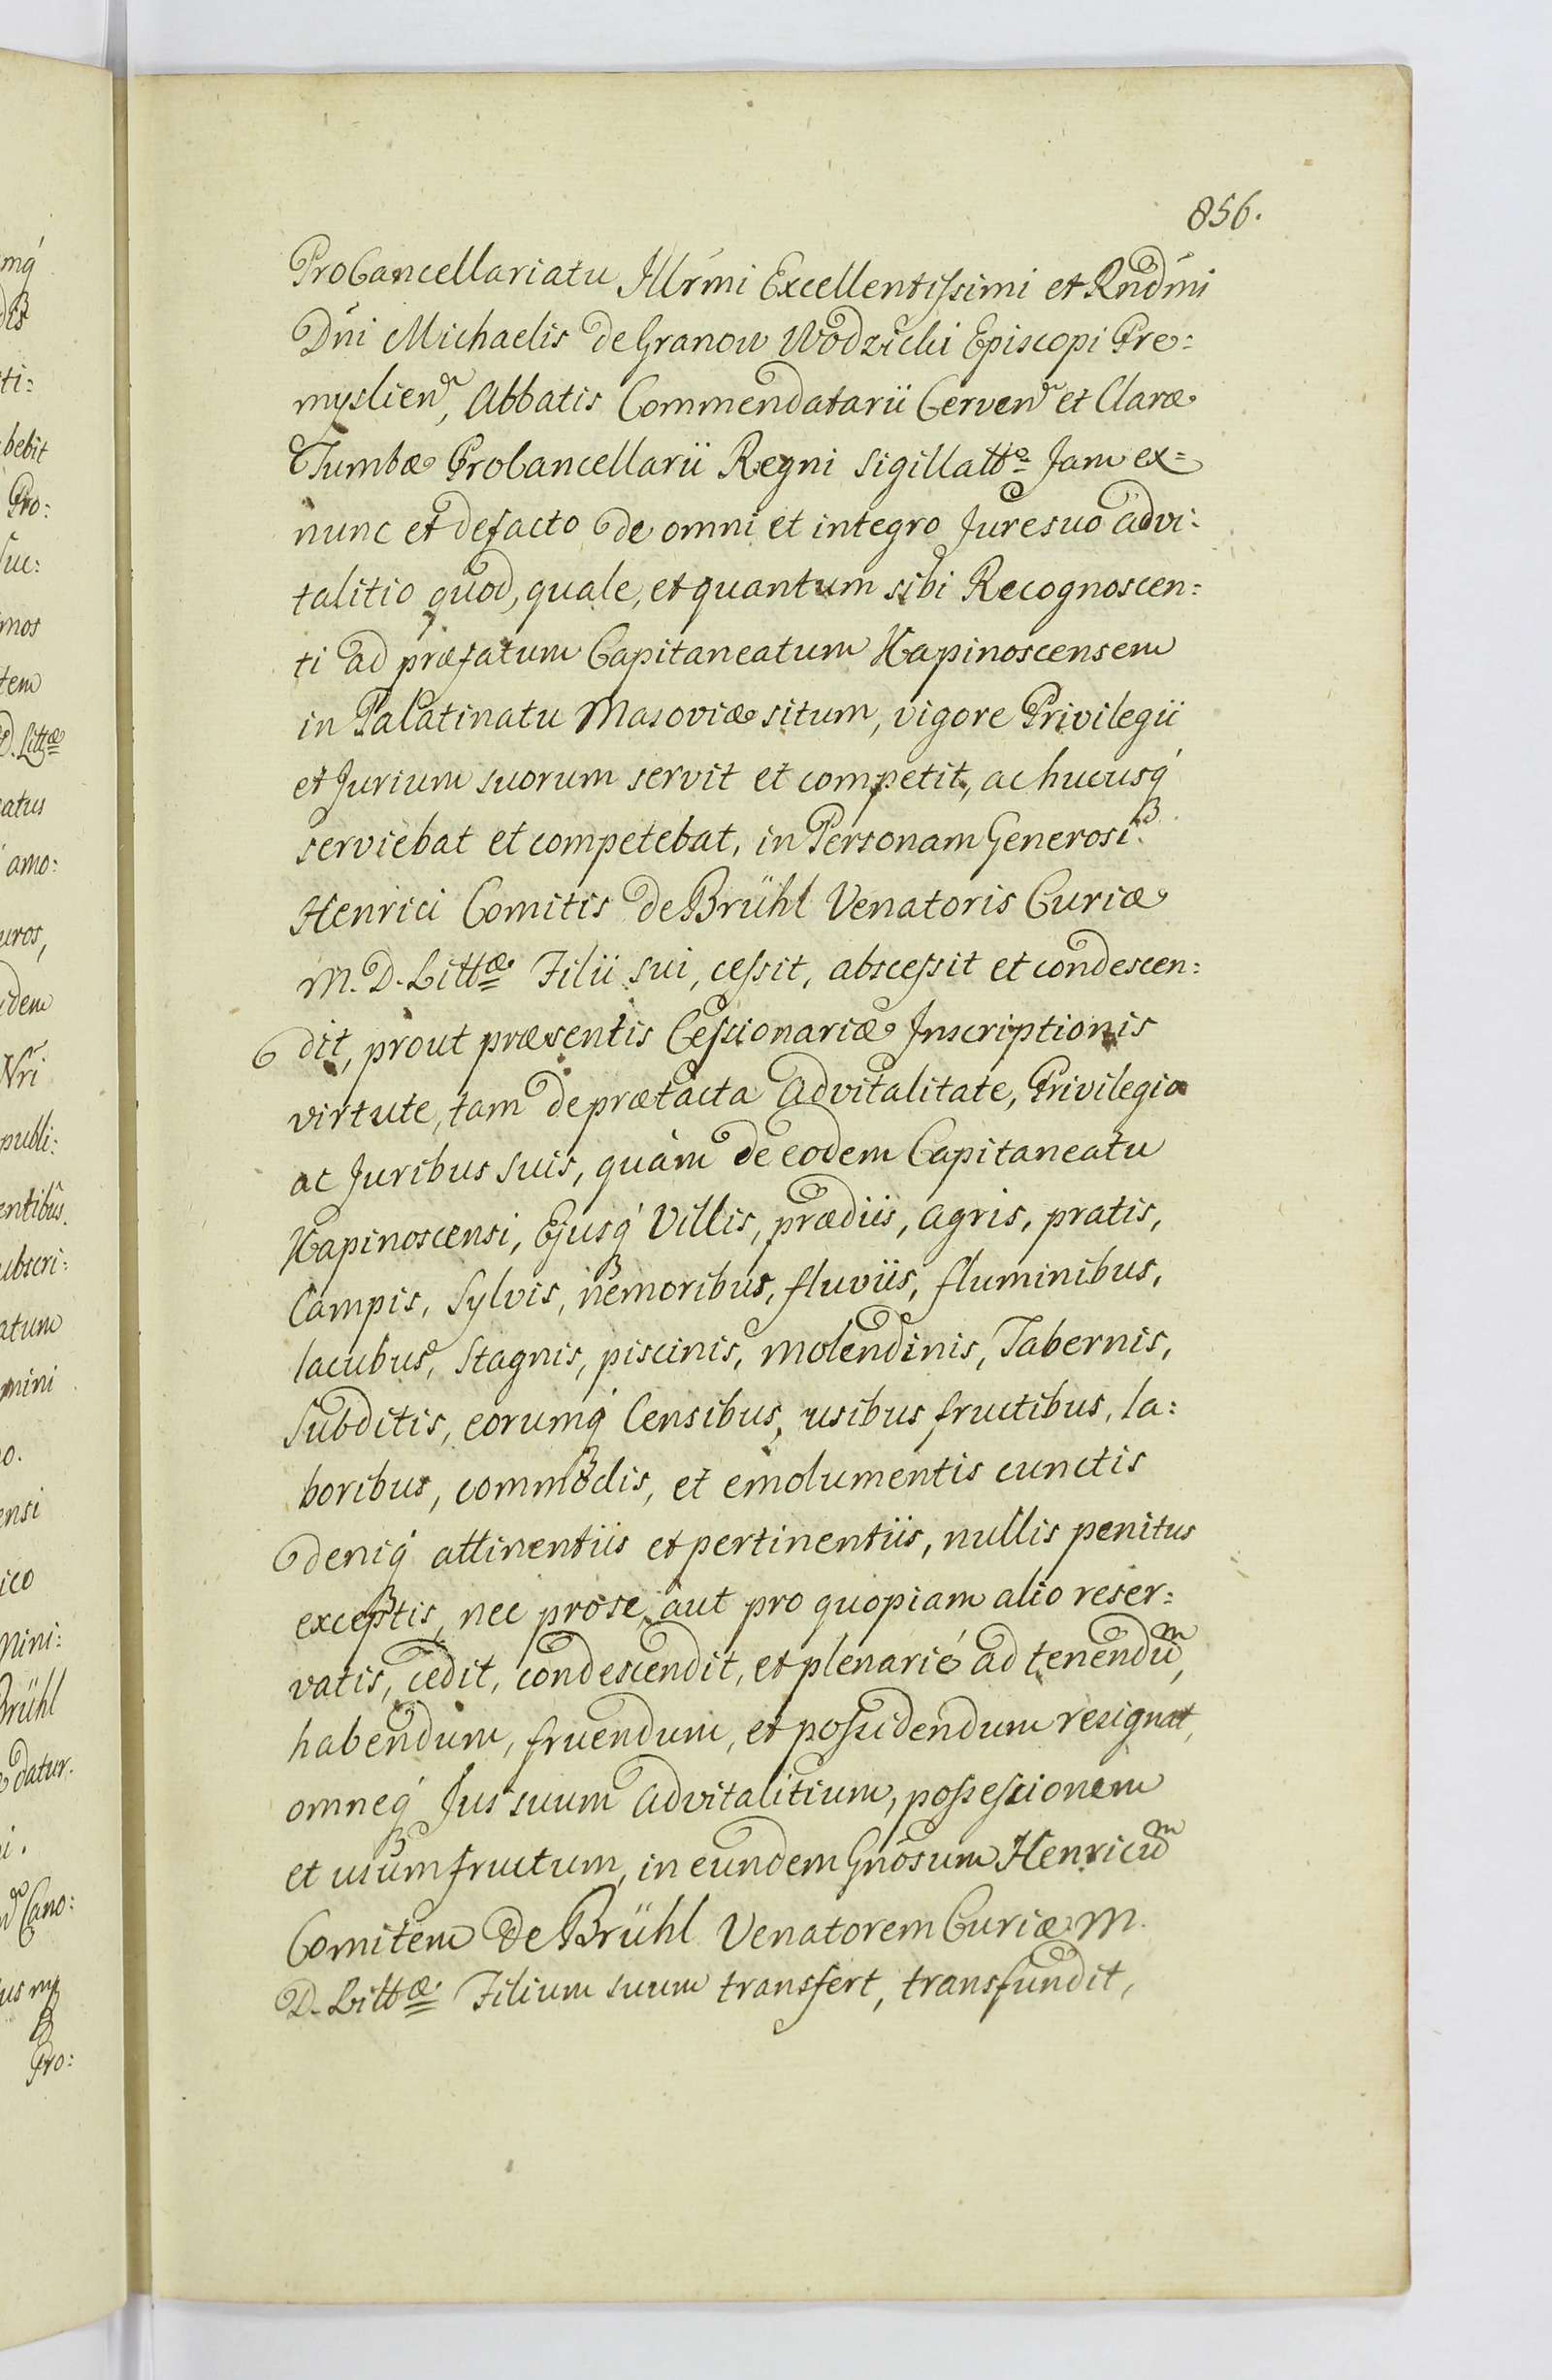 856.
ProCancellariatu Illrmi Excellentissimi et Rndmi
Dni Michaelis de Granow Wodzicki Episcopi Pre:
myslien, Abbatis Commendatarii Cerven et Claræ
Tumbæ ProCancellarii Regni Sigillatto Jam ex=
nunc et de facto de omni et integro Jure suo advi:
talitio quod, quale, et quantum sibi Recognoscen:
ti ad præfatum Capitaneatum Kapinoscensem
in Palatinatu Masoviæ situm, vigore Privilegii
et Jurium suorum servit et competit, ac hucusq
serviebat et competebat, in Personam Generosi
Henrici Comitis de Brühl Venatoris Curiæ
M. D. Littæ Filii sui, cessit, abscessit et condescen:
dit, prout præsentis Cessionariæ Inscriptionis
virtute, tam de prætacta advitalitate, Privilegio
ac Juribus suis, quàm de eodem Capitaneatu
Kapinoscensi, Ejusq Villis, prædiis, agris, pratis,
Campis, Sylvis, nemoribus, fluviis, fluminibus,
lacubus, Stagnis, piscinis, molendinis, Tabernis,
Subditis, eorumq Censibus, usibus fructibus, la:
boribus, commodis, et emolumentis cunctis
deniq attinentiis et pertinentiis, nullis penitus
exceptis, nec pro se, aut pro quopiam alio reser:
vatis, cedit, condescendit, et plenarié ad tenendum,
habendum, fruendum, et possidendum resignat,
omneq Jus suum advitalitium, possessionem
et usumfructum, in eundem Gnosum Henricum
Comitem de Brühl Venatorem Curiæ M.
D. Littæ Filium suum transfert, transfundit,